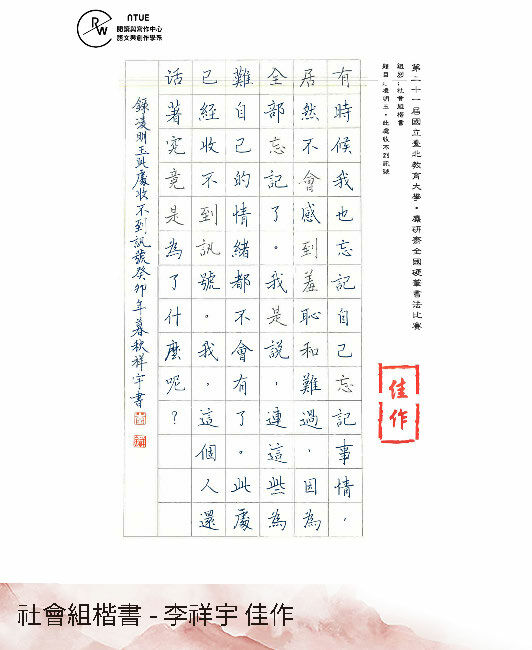 NTUE
閱讀與寫作中心
語文與創作學系
RW
第二十一屆國立臺北教育大學・麋研齋全國硬筆書法比賽
組別:社會組楷書
題目:凌明玉・此處收不到訊號
佳作
有時候我也忘記自己忘記事情,
居然不會感到羞恥和難過,因為
全部忘記了。我是說,連這些為
難自己的情緒都不會有了。此處
已經收不到訊號。我,這個人還
活著究竟是為了什麼呢?
錄凌明玉此處收不到訊號癸卯年暮秋祥宇書
社會組楷書 - 李祥宇 佳作